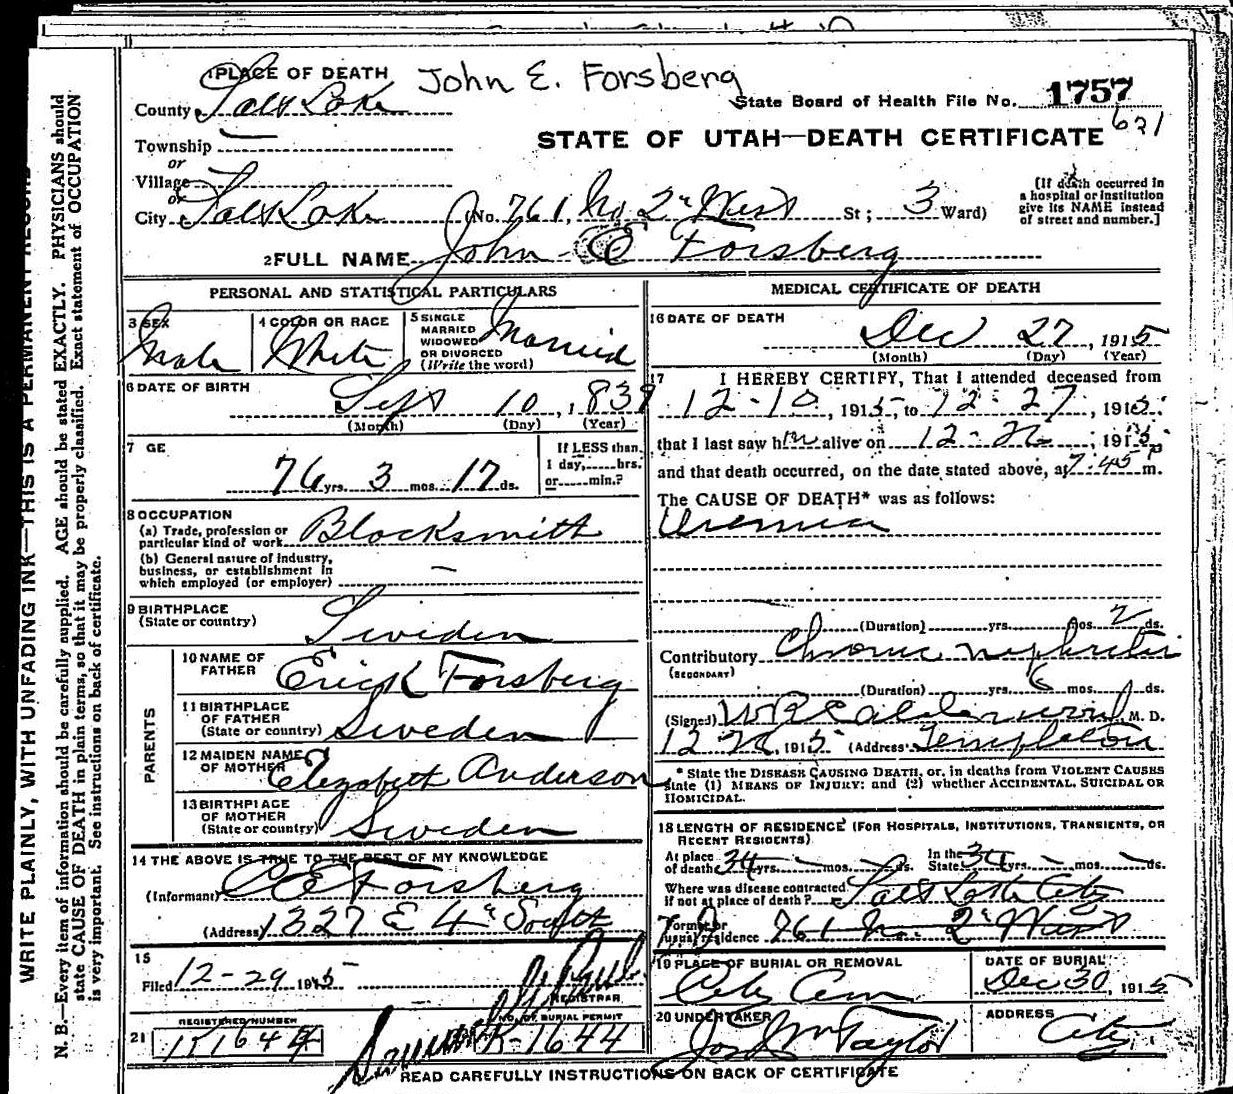 WRITE PLAINLY, WITH UNFADING INK—THIS IS A PERMANENT RECORD
N. B.—Every item of information should be carefully supplied. AGE should be stated EXACTLY. PHYSICIANS should
state CAUSE OF DEATH in plain terms, so that it may be properly classified. Exact statement of OCCUPATION
is very important. See instructions on back of certificate.
1 PLACE OF DEATH John E. Forsberg
County Salt Lake State Board of Health File No. 1757
621
Township
STATE OF UTAH—DEATH CERTIFICATE
or
Village
or
City Salt Lake (No. 761, No. 2nd West St; 3 Ward)
[If death occurred in
a hospital or institution
give its NAME instead
of street and number.]
2 FULL NAME John E Forsberg
PERSONAL AND STATISTICAL PARTICULARS
3 SEX
Male
4 COLOR OR RACE
White
5 SINGLE
MARRIED
WIDOWED
OR DIVORCED
(Write the word)
Married
6 DATE OF BIRTH
Sept 10, 1839
(Month) (Day) (Year)
7 GE
76 yrs. 3 mos. 17 ds.
If LESS than
1 day,......hrs.
or......min.?
8 OCCUPATION
(a) Trade, profession or
particular kind of work Blacksmith
(b) General nature of industry,
business, or establishment in
which employed (or employer) —
9 BIRTHPLACE
(State or country)
Sweden
PARENTS
10 NAME OF
FATHER
Erick Forsberg
11 BIRTHPLACE
OF FATHER
(State or country) Sweden
12 MAIDEN NAME
OF MOTHER Elizabeth Anderson
13 BIRTHPLACE
OF MOTHER
(State or country) Sweden
14 THE ABOVE IS TRUE TO THE BEST OF MY KNOWLEDGE
(Informant) C E Forsberg
(Address) 1327 E 4th South
15
Filed 12-29 1915
REGISTRAR
21 REGISTERED NUMBER
NO. OF BURIAL PERMIT
K-1644
MEDICAL CERTIFICATE OF DEATH
16 DATE OF DEATH
Dec 27, 1915
(Month) (Day) (Year)
17 I HEREBY CERTIFY, That I attended deceased from
12-10, 1915, to 12-27, 1915
that I last saw him alive on 12-26, 1915
and that death occurred, on the date stated above, at 7:45 P m.
The CAUSE OF DEATH* was as follows:
Uremia
(Duration) yrs. mos. 2 ds.
Contributory Chronic nephritis
(SECONDARY)
(Duration) yrs. 6 mos. ds.
(Signed) M. D.
12 28, 1915 (Address) Templeton
* State the DISEASE CAUSING DEATH, or, in deaths from VIOLENT CAUSES
state (1) MEANS OF INJURY: and (2) whether ACCIDENTAL, SUICIDAL OR
HOMICIDAL.
18 LENGTH OF RESIDENCE (FOR HOSPITALS, INSTITUTIONS, TRANSIENTS, OR
RECENT RESIDENTS)
At place
of death 34 yrs. — mos. — ds. In the
State 34 yrs. — mos. — ds.
Where was disease contracted
if not at place of death? Salt Lake City
Former or
usual residence 761 No. 2nd West
19 PLACE OF BURIAL OR REMOVAL
City Cem
DATE OF BURIAL
Dec 30, 1915
20 UNDERTAKER
Jos Wm Taylor
ADDRESS
City
READ CAREFULLY INSTRUCTIONS ON BACK OF CERTIFICATE